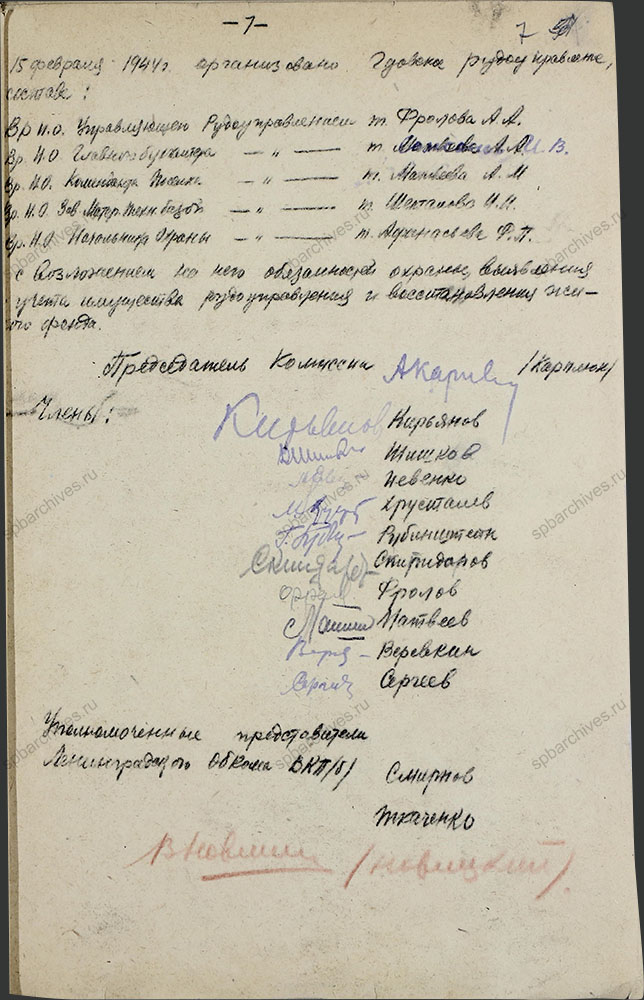 -7-
7
15 февраля 1944 г. организовано Гдовское рудоуправление,
составе:
Вр И.О. Управляющего Рудоуправлением т. Фролова А.А.
Вр. И.О Главного бухгалтера — " — т И.В.
Вр. И.О. Коменданта — " — т. Матвеева А. М
Вр. И.О Зав Матер. Техн базой — " — т. И.И.
Вр. И.О Начальника Охраны — " — т. Афанасьева Ф.П.
с возложением на него обязанностей охраны, выявления
учета имущества рудоуправления и восстановления жи-
лого фонда.
Председатель Комиссии АКарпюк /Карпюк/
Члены: Кирьянов Кирьянов
Шишков
Невенко
Хрусталев
Рубинштейн
Спиридонов
Фролов
Матвеев
Веревкин
Сергеев
Уполномоченные представители
Ленинградского Обкома ВКП/б/ Смирнов
Ткаченко
/Новицкий/.
spbarchives.ru